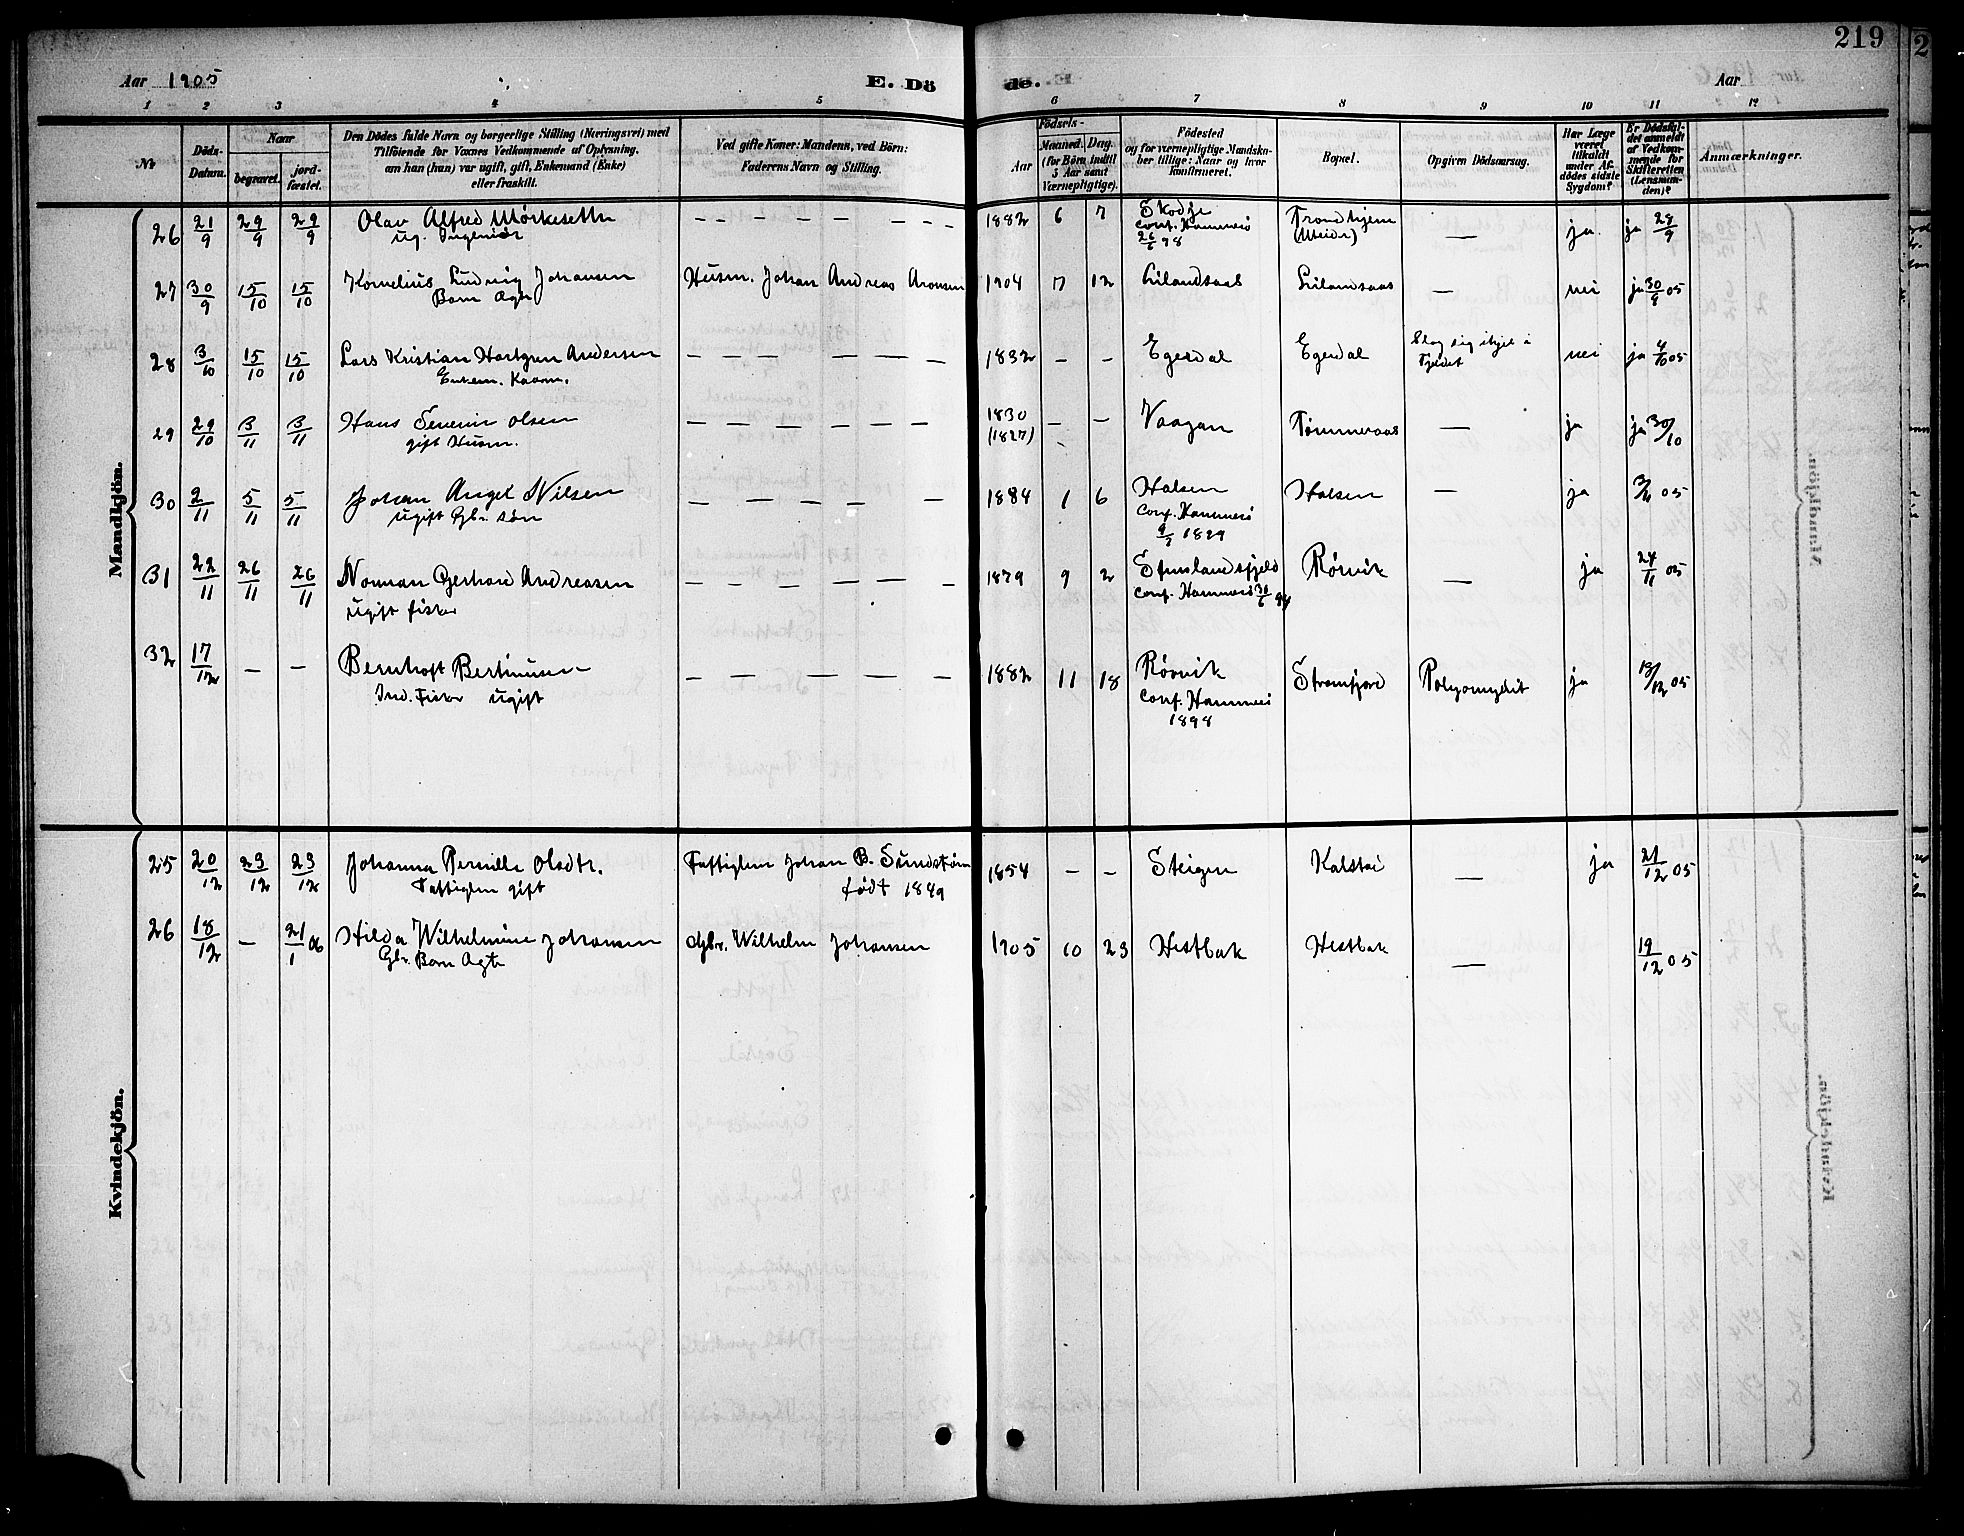 219
Aar 1905
E. Dö
de.
Aar
1 2 3 4 5 6 7 8 9 10 11 12
Nr
Döds-Datum.
Naar
begravet.
jord-fæstet.
Den Dödes fulde Navn og borgerlige Stilling (Næringsvei) med
Tilföiende for Voxnes Vedkommende af Oplysning,
om han (hun) var ugift, gift, Enkemand (Enke)
eller fraskilt.
Ved gifte Koner: Mandens, ved Börn:
Faderens Navn og Stilling.
Födsels-
Aar
Maaned. Dag.
(for Börn indtil
5 Aar samt
Værnepligtige).
Födested
og for værnepligtige Mandska-
ber tillige: Naar og hvor
konfirmeret.
Bopæl.
Opgiven Dödsaarsag.
Har Læge
været
tilkaldt
under Af-
dödes sidste
Sygdom?
Er Dödsfal-
det anmeldt
af Vedkom-
mende for
Skifteretten
(Lensman-
den)?
Anmærkninger.
Mandkjön.
26 21/9 29/9 29/9 Olav Alfred Mørkeseth — — — — — — — 1882 6 7 Skodje Trondhjem — ja ja 28/9
ug. Ingeniør conf. Hammerö (Meider)
26/6 98
27 30/9 15/10 15/10 Kornelius Ludvig Johansen Husm. Johan Andreas Aronsen 1904 7 12 Lilandsaas Lilandsaas — nei ja 30/9 05
Barn Ægte
28 3/10 15/10 15/10 Lars Kristian Hartgun Andersen — — — — — — — 1832 — — Egerdal Egerdal Slog sig ihjel i nei ja 4/10 05
Enkem. Kaarm. Fjeldet
29 29/10 3/11 3/11 Hans Severin Olsen — — — — — — — 1830 — — Vaagan Tømmeraas — ja ja 30/10
gift Husm. (1827)
30 2/11 5/11 5/11 Johan Angel Nilsen — — — — — 1884 1 6 Halsen Halsen — ja 3/11 05
ugift Gbr. søn Conf. Hammerö
1899
31 22/11 26/11 26/11 Norman Gerhard Andreasen — — — — — — 1879 9 2 Stenslandsfjeld Rørvik — ja 24/11 05
ugift fisker Conf. Hammerö 30/6 94
32 17/12 — — Bernhoft Bertinusen — — — — — 1882 11 18 Rørvik Strømfjord Polyomyelit ja 18/12 05
Ind. Fisker ugift Conf. Hammerö
1898
Kvindekjön.
25 20/12 23/12 23/12 Johanna Pernille Olsdtr. Fattiglem Johan B. Sundstrøm 1854 — — Steigen Kalstø — ja 21/12 05
Fattiglem gift født 1849
26 18/12 — 21/1 06 Hilda Wilhelmine Johansen Gbr. Wilhelm Johansen 1905 10 23 Hestbak Hestbak — 19/12 05
Gbr. Barn Ægte
Mandkjön.
Kvindekjön.